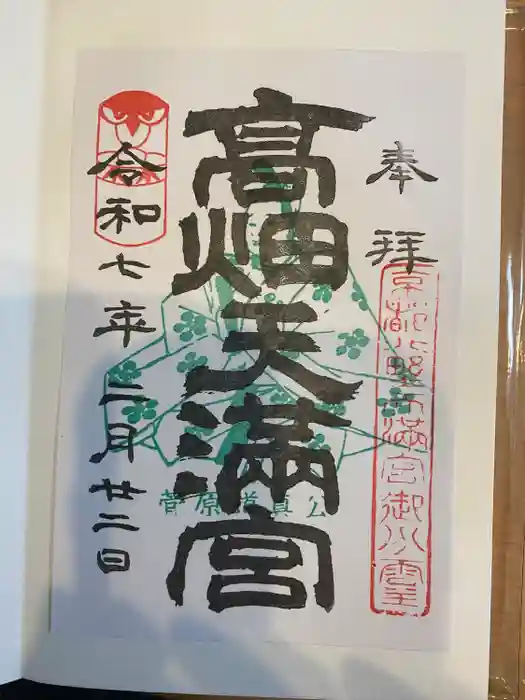 奉拝
京都北野天満宮御分霊
高畑天満宮
菅原道真公
令和七年二月廿二日